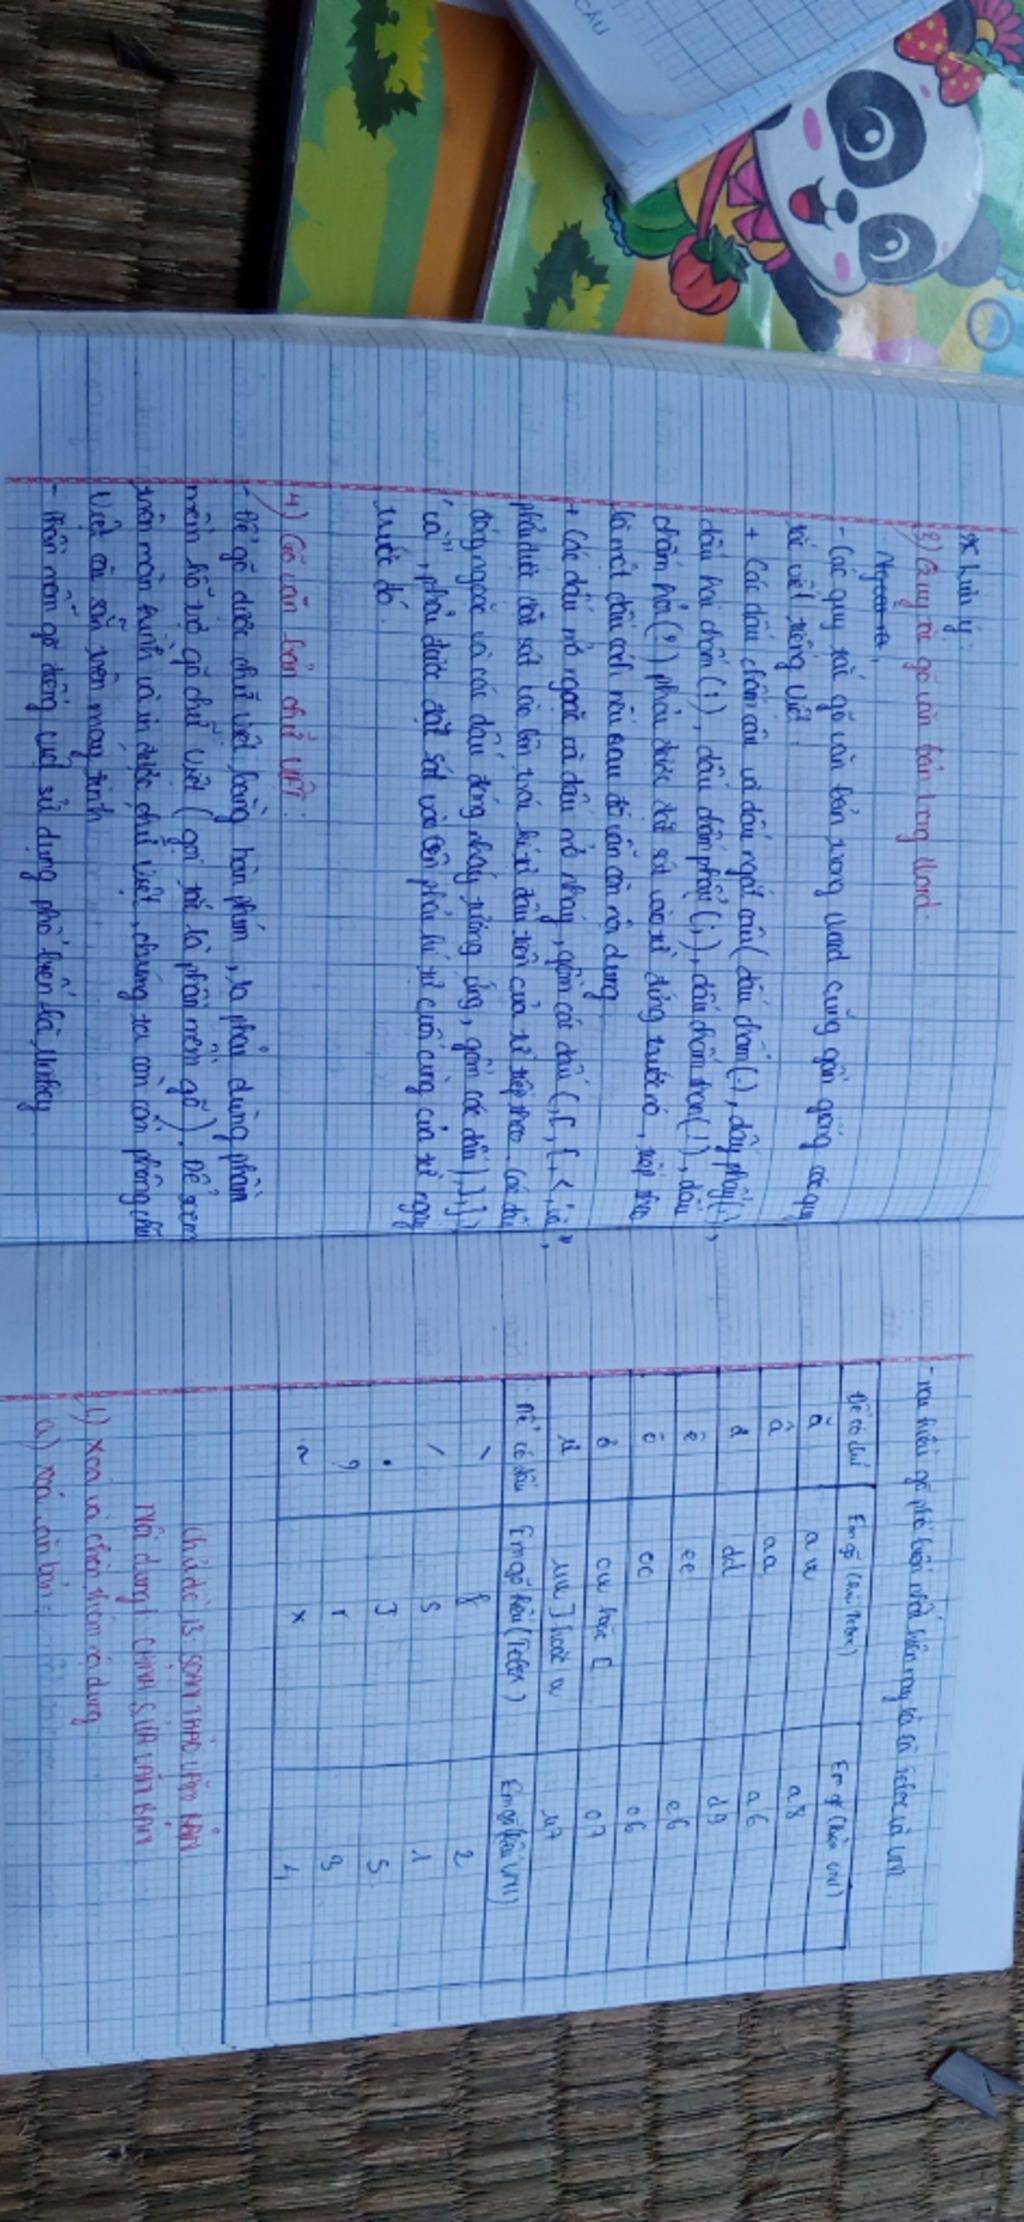 CÂU
* Lưu ý
3) Quy tắc gõ văn bản trong Word
- Các quy tắc gõ văn bản trong Word cũng gần giống các quy
tắc viết tiếng Việt:
+ Các dấu chấm câu và dấu ngắt câu (dấu chấm (.), dấu phẩy (,),
dấu hai chấm (:), dấu chấm phẩy (;), dấu chấm than (!), dấu
chấm hỏi (?) phải được đặt sát vào từ đứng trước nó, tiếp theo
là một dấu cách nếu sau đó vẫn còn nội dung
+ Các dấu mở ngoặc và dấu mở nháy, gồm các dấu (, [, {, <, ' và "
phải được đặt sát vào bên trái kí tự đầu tiên của từ tiếp theo. Các dấu
đóng ngoặc và các dấu đóng nháy tương ứng, gồm các dấu ), ], }, >,
' và ", phải được đặt sát vào bên phải kí tự cuối cùng của từ ngay
trước đó.
4) Gõ văn bản chữ Việt:
- Để gõ được chữ Việt bằng bàn phím, ta phải dùng phần
mềm hỗ trợ gõ chữ Việt (gọi tắt là phần mềm gõ). Để xem
trên màn hình và in được chữ Việt, chúng ta còn cần phông chữ
Việt cài sẵn trên máy tính
- Phần mềm gõ tiếng Việt sử dụng phổ biến là Unikey
- Hai kiểu gõ phổ biến nhất hiện nay là là Telex và VNI
Để có chữ Em gõ (kiểu Telex) Em gõ (kiểu VNI)
ă aw a8
â aa a6
đ dd d9
ê ee e6
ô oo o6
ơ ow hoặc [ o7
ư uw ] hoặc w u7
Để có dấu Em gõ kiểu (Telex) Em gõ (kiểu VNI)
\ f 2
/ s 1
. J 5
? r 3
~ x 4
Chủ đề 13: SOẠN THẢO VĂN BẢN
Nội dung 1 CHỈNH SỬA VĂN BẢN
1) Xoá và chèn thêm nội dung
a) Xoá văn bản: